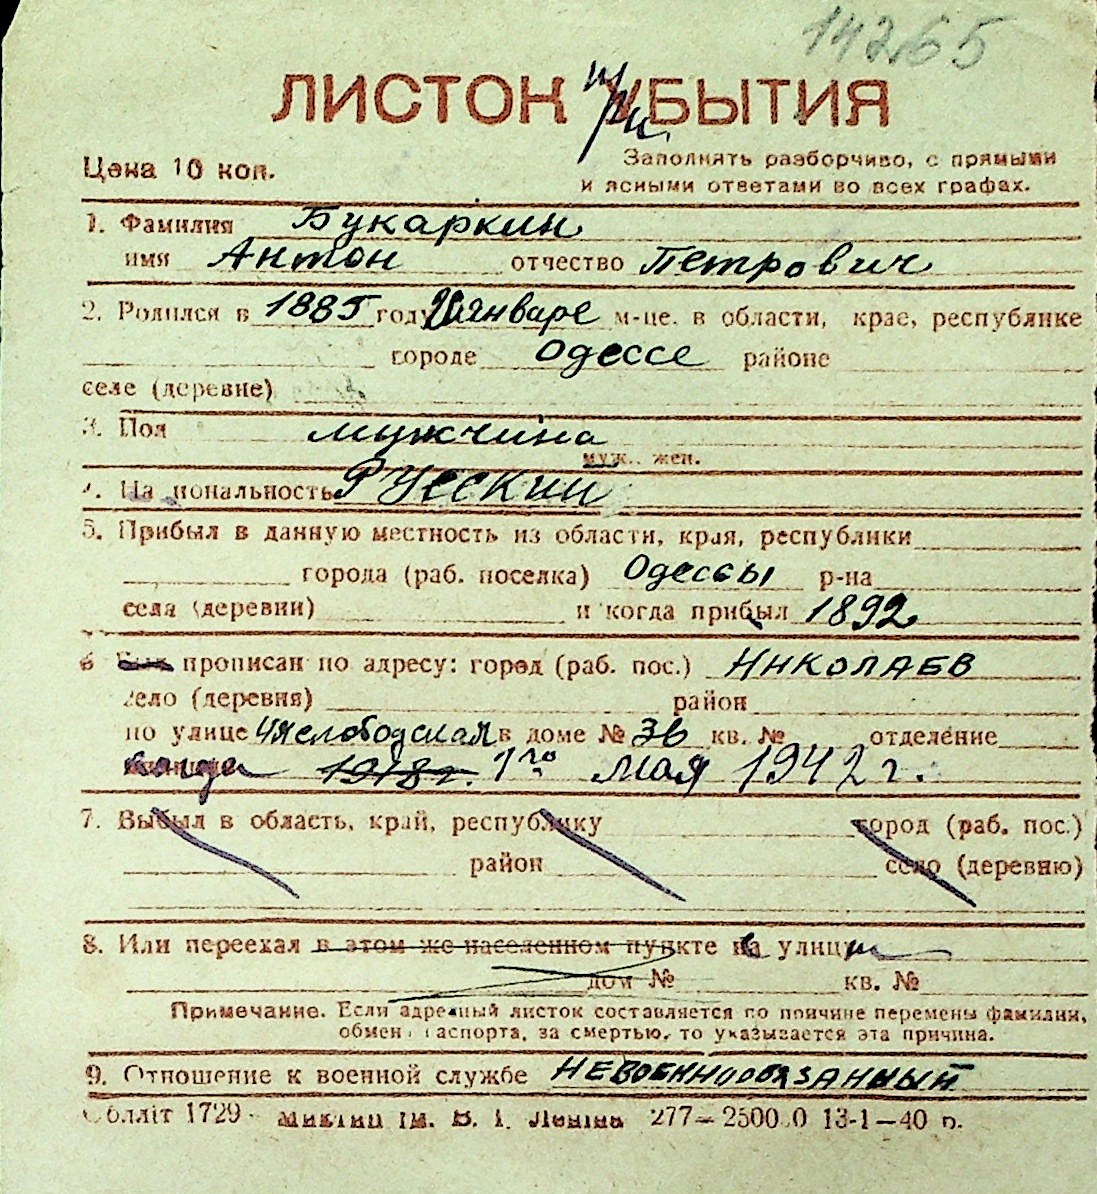 14265
ЛИСТОК УБЫТИЯ
при
Цена 10 коп.
Заполнять разборчиво, с прямыми
и ясными ответами во всех графах.
1. Фамилия Букаркин
имя Антон отчество Петрович
2. Родился в 1885 году январе м-це. в области, крае, республике
городе Одессе районе
селе (деревне)
3. Пол мужчина
муж.. жен.
4. Национальность Русский
5. Прибыл в данную местность из области, края, республики
города (раб. поселка) Одессы р-на
села (деревни) и когда прибыл 1892
6 Был прописан по адресу: город (раб. пос.) Николаев
село (деревня) район
по улице в доме № 36 кв. № отделение
когда 1918г. 1го мая 1942 г.
7. Выбыл в область, край, республику город (раб. пос.)
район село (деревню)
8. Или переехал в этом же населенном пункте на улицу
дом № кв. №
Примечание. Если адресный листок составляется по причине перемены фамилии,
обмена паспорта, за смертью, то указывается эта причина.
9. Отношение к военной службе невоеннообязанный
Облліт 1729 ім. В. І. Леніна 277–2500 0 13-1–40 р.